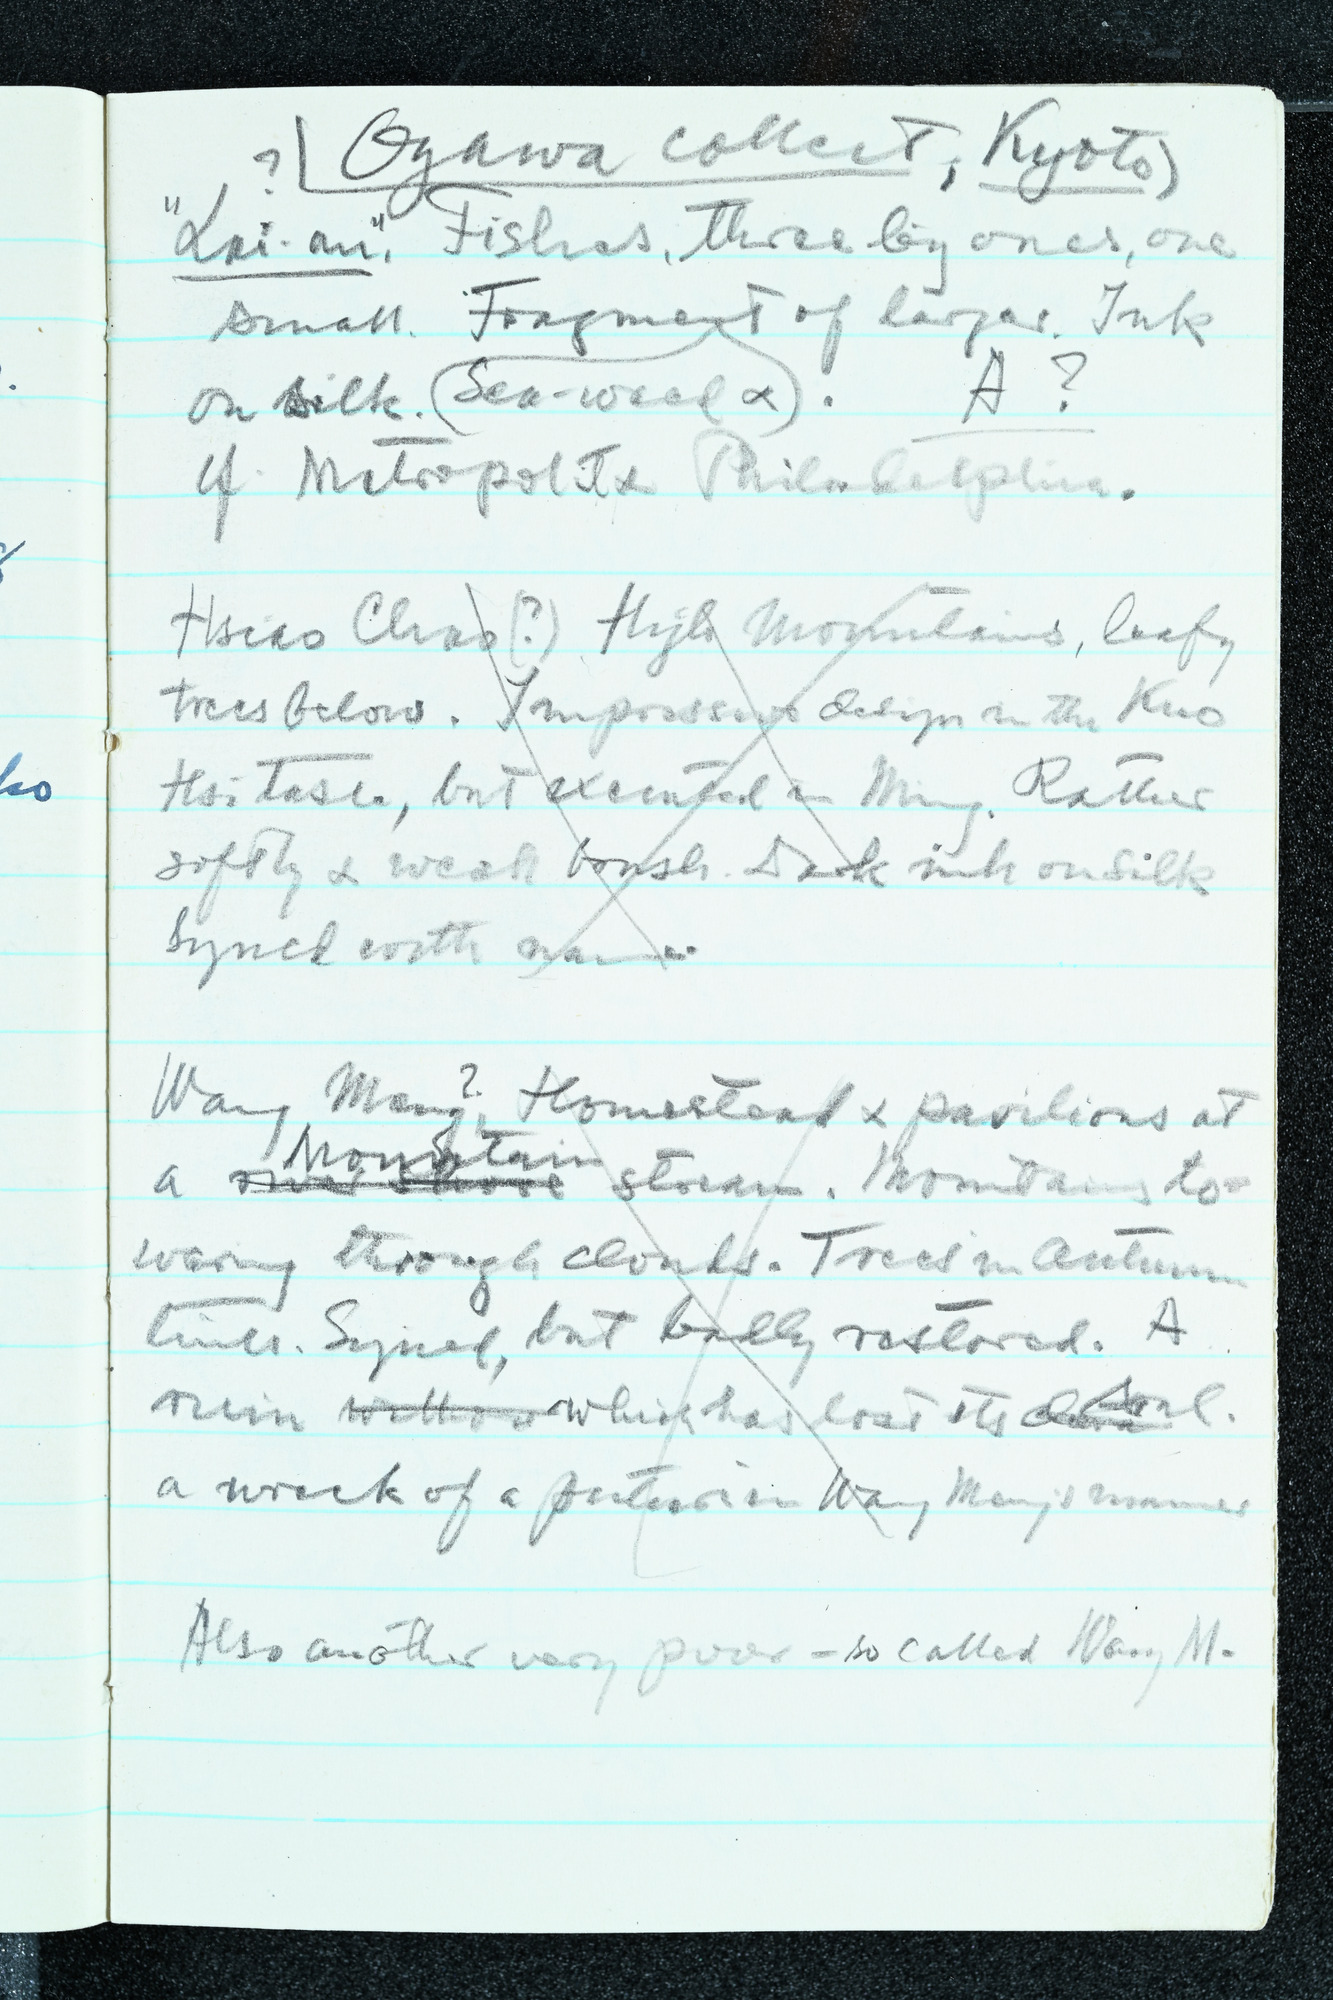 ? (Ogawa collect, Kyoto)
"Lai-an", Fishes, three big ones, one
small. Fragment of larger. Ink
on silk. (Sea-weed &). A ?
cf. Metropolit & Philadelphia.
Hsiao Chao (?) High Mountains, leafy
trees below. Impressive design in the Kuo
Hsi taste, but executed in Ming. Rather
softly & weak brush. Dark ink on silk
Signed with name.
Wang Meng?, Homestead & pavilions at
a river shore Mountain stream. Mountains to-
waring through clouds. Trees in autumn
tints. Signed, but badly restored. A
ruin without which has lost its soul.
a wreck of a picture in Wang Meng's manner
Also another very poor - so called Wang M.
ko